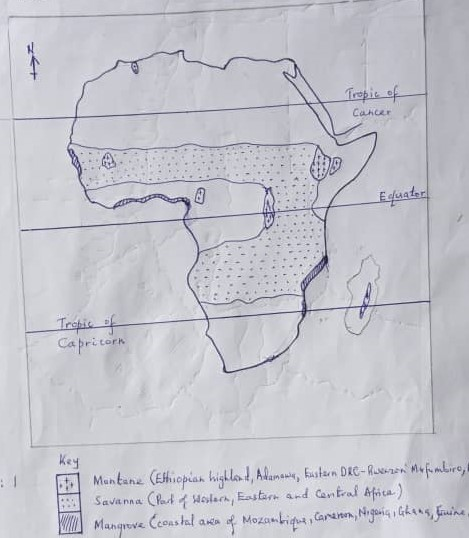 N
Tropic of
Cancer
Equator
Tropic of
Capricorn
Key
: 1
Montane (Ethiopian highland, Adamawa, Eastern DRC-Rwenzori Mufumbiro,
Savanna (Part of Western, Eastern and Central Africa)
Mangrove (coastal area of Mozambique, Cameroon, Nigeria, Ghana,